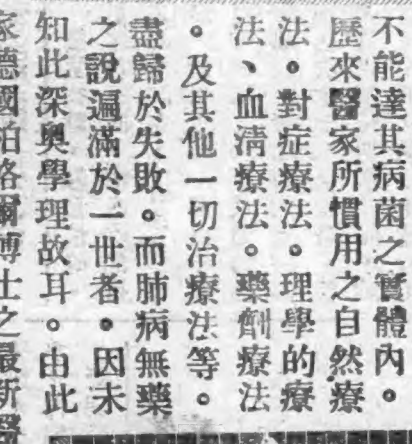 不能達其病菌之實體內。
歷來醫家所慣用之自然療
法。對症療法。理學的療
法、血清療法。藥劑療法
。及其他一切治療法等。
盡歸於失敗。而肺病無藥
之說遍滿於一世者。因未
知此深奧學理故耳。由此
家德國柏格爾博士之最新醫